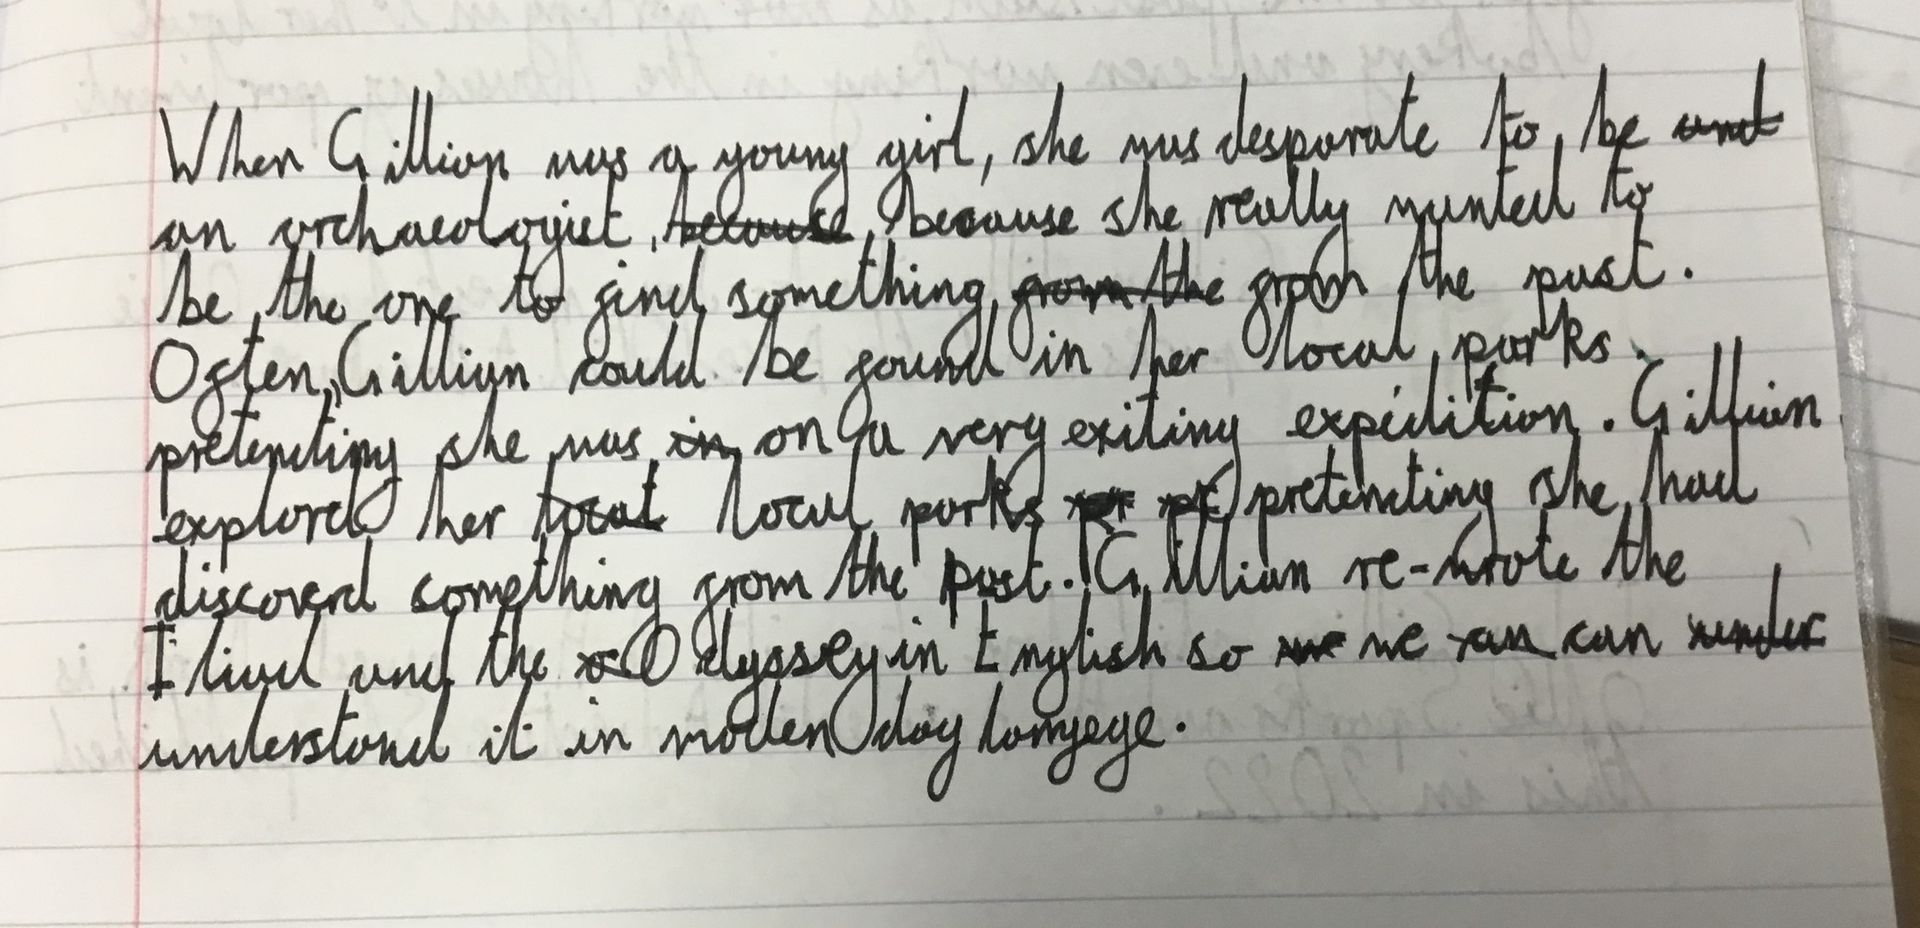 When Gillian was a young girl, she was desparate to be and
an archaeologist, because, because she really wanted to
be the one to find something from the from the past.
Often, Gillian could be found in her local parks
pretending she was in on a very exiting expedition. Gillian
explord her local local parks pretending she had
discoverd something from the past. Gillian re-wrote the
Iliad and the Odyssey in English so we can can under
understand it in moden day langege.